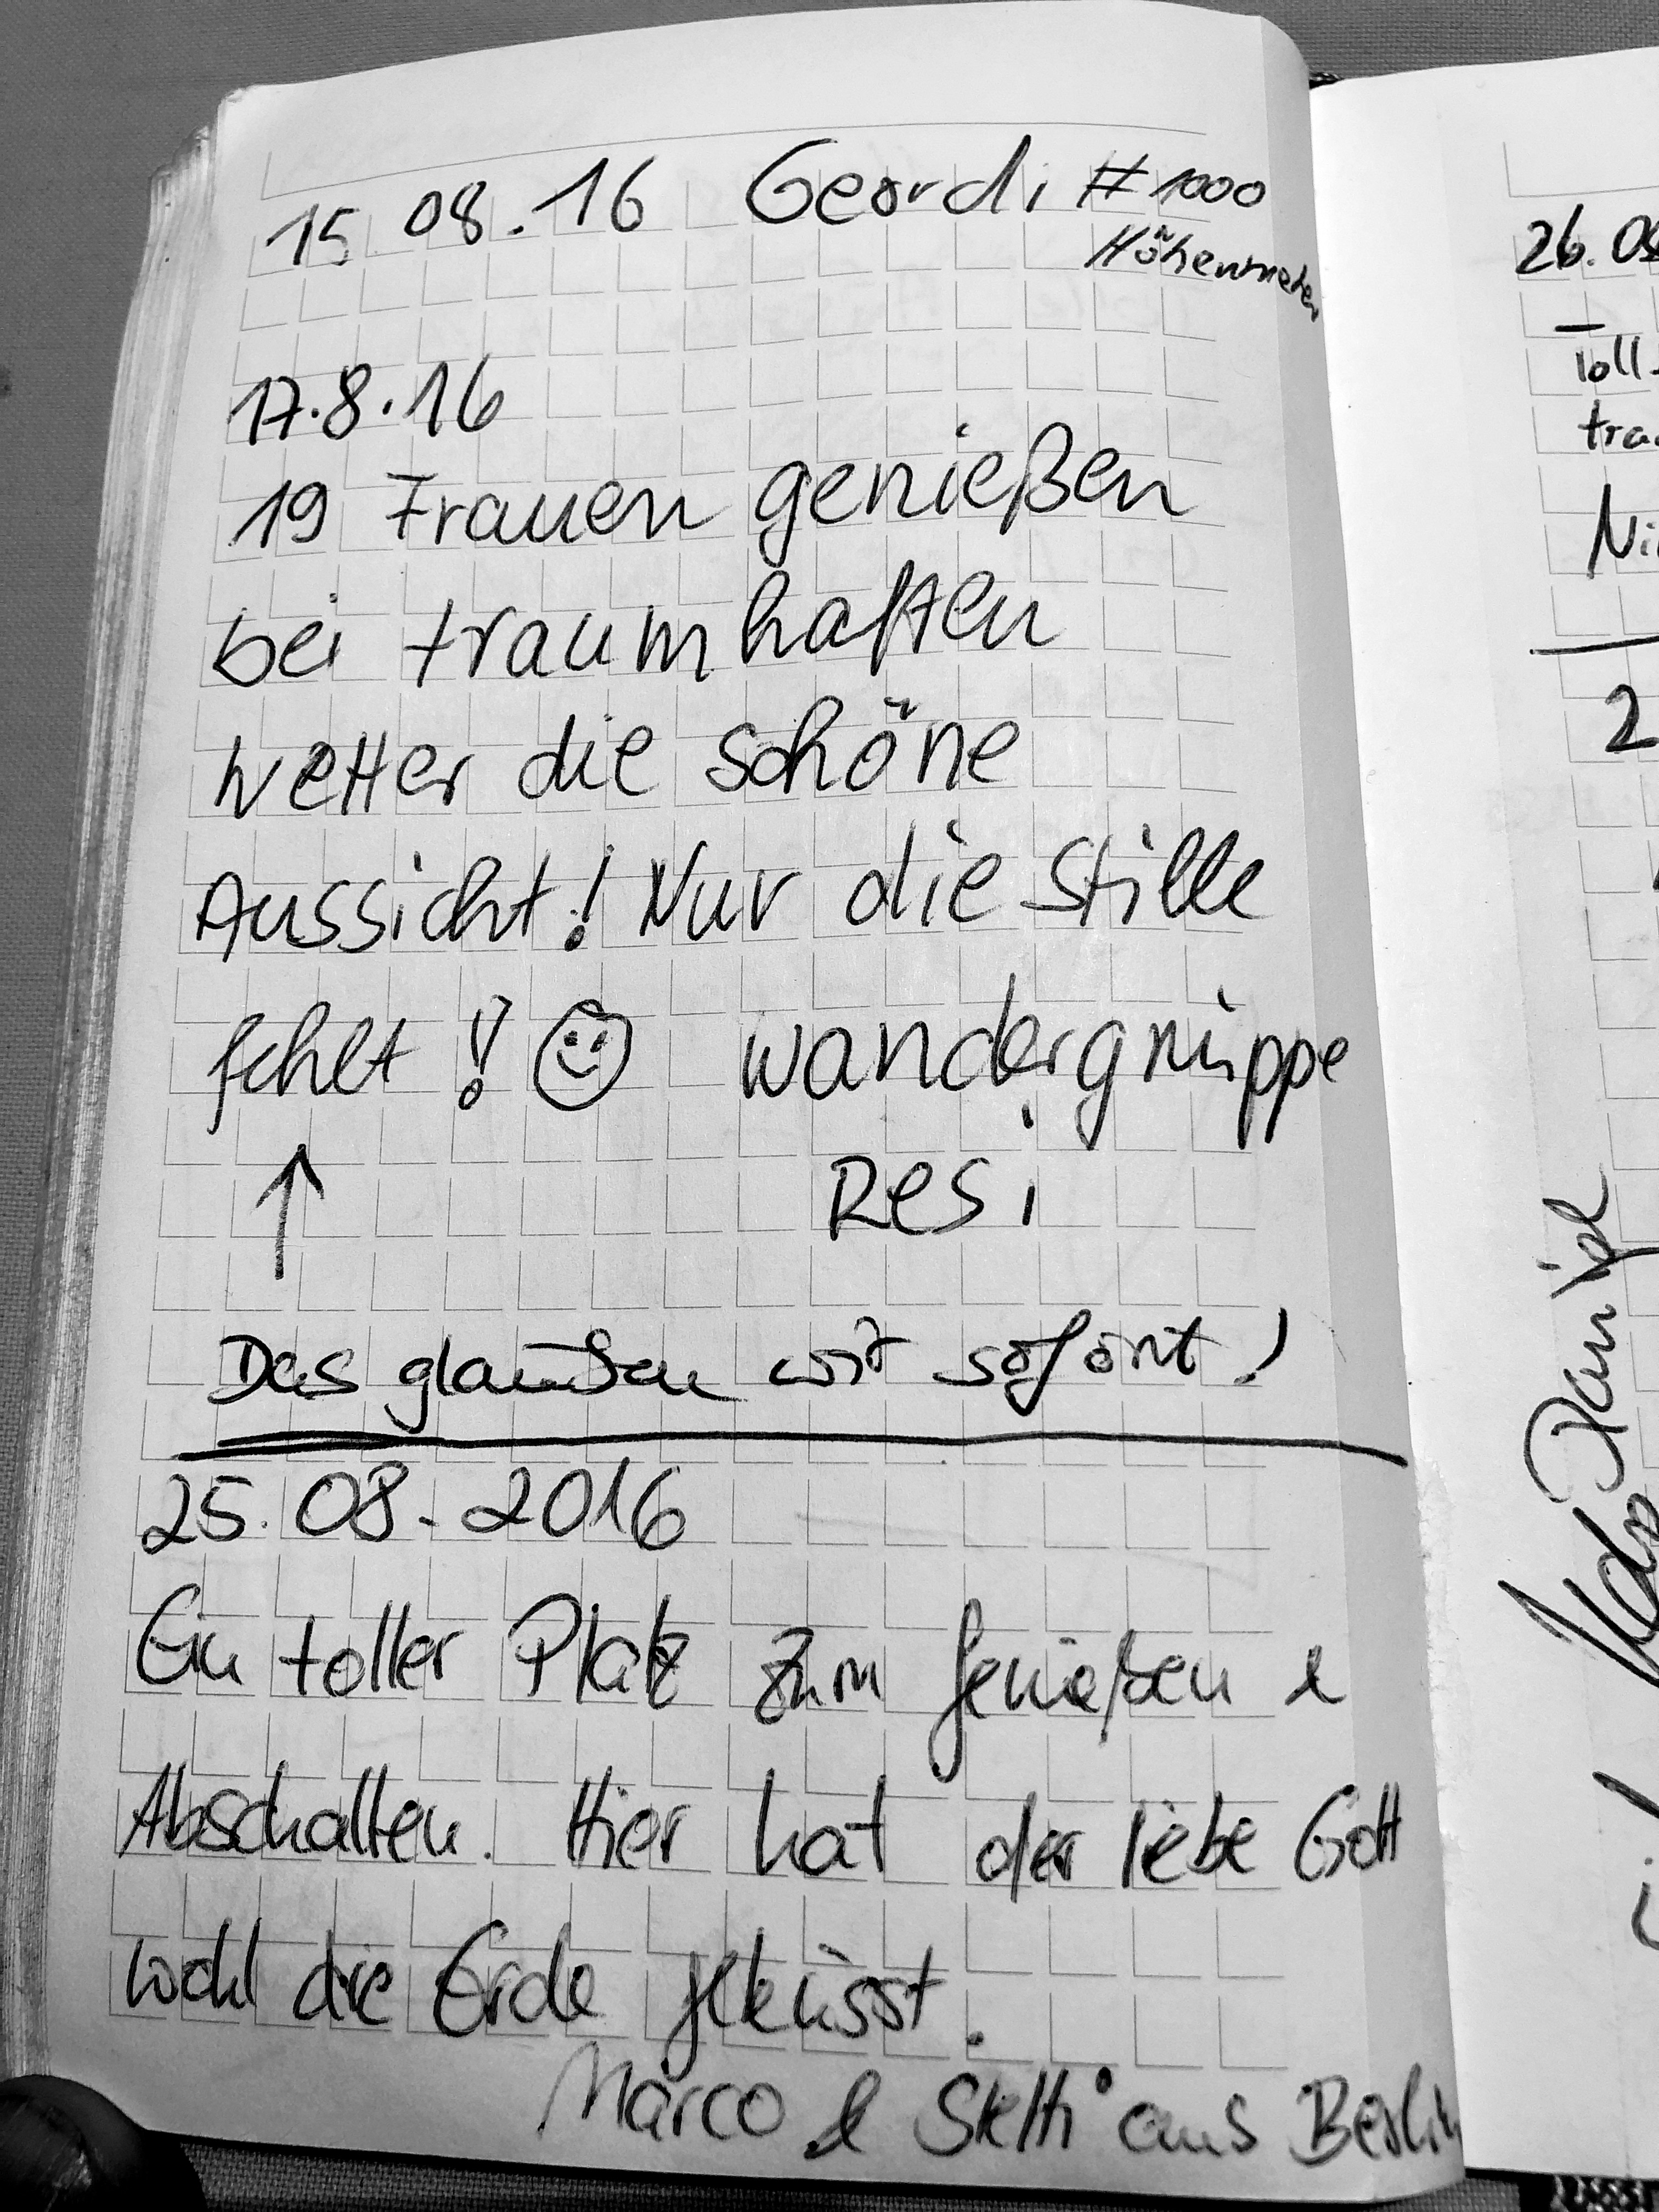 15.08.16 Geordi #1000
Höhenmeter
17.8.16
19 Frauen genießen
bei traumhaften
Wetter die schöne
Aussicht! Nur die Stille
fehlt!! ☺ Wandergruppe
↑ Resi
Das glauben wir sofort!
25.08.2016
Ein toller Platz zum Genießen &
Abschalten. Hier hat der liebe Gott
wohl die Erde geküsst.
Marco & Steffi aus Berlin
26.08
Toll
tra
Ni
2
Daniel